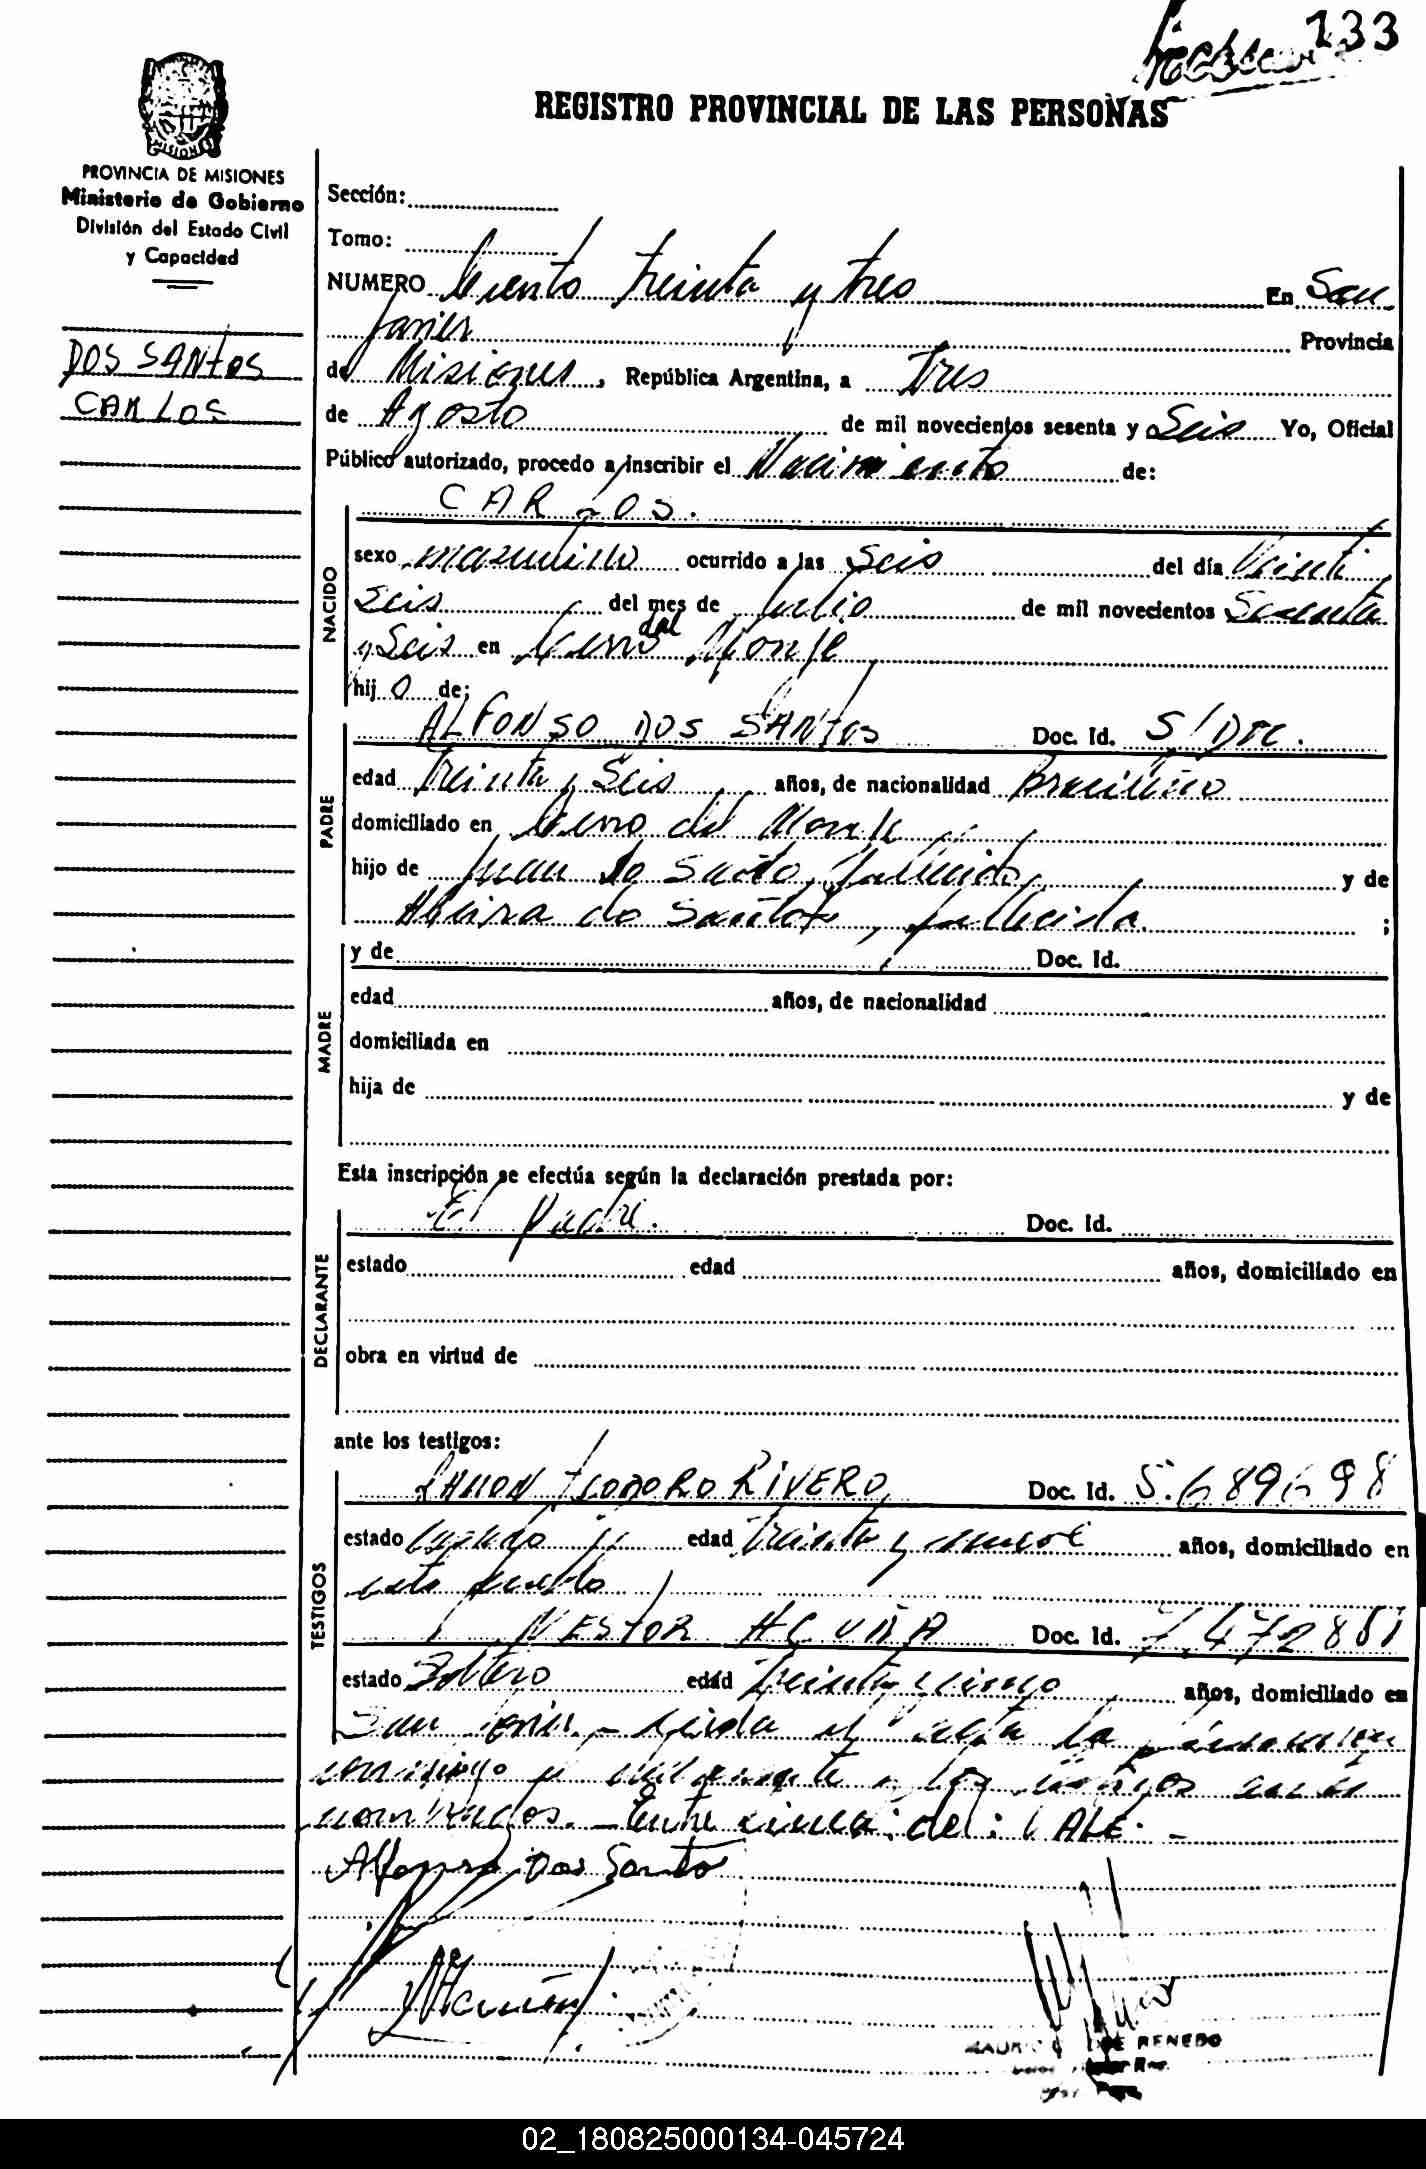 133
REGISTRO PROVINCIAL DE LAS PERSONAS
MISIONES
PROVINCIA DE MISIONES
Ministerio de Gobierno
División del Estado Civil
y Capacidad
DOS SANTOS
CARLOS
Sección:
Tomo:
NUMERO Ciento treinta y tres En San
Javier Provincia
de Misiones, República Argentina, a Tres
de Agosto de mil novecientos sesenta y Seis Yo, Oficial
Público autorizado, procedo a inscribir el Nacimiento de:
NACIDO
CARLOS.
sexo masculino ocurrido a las seis del día Veinti
seis del mes de Julio de mil novecientos Sesenta
y Seis en Cerro del Monje
hijo de:
PADRE
ALFONSO DOS SANTOS Doc. Id. S/DOC.
edad Treinta y Seis años, de nacionalidad Brasileño
domiciliado en Cerro del Monje
hijo de Juan do Santo, fallecido, y de
do Santo, fallecida. ;
MADRE
y de Doc. Id.
edad años, de nacionalidad
domiciliada en
hija de y de
Esta inscripción se efectúa según la declaración prestada por:
DECLARANTE
El Padre. Doc. Id.
estado edad años, domiciliado en
obra en virtud de
ante los testigos:
TESTIGOS
RAMON TEODORO RIVERO Doc. Id. 5.689698
estado Casado edad treinta y nueve años, domiciliado en
este pueblo
NESTOR ACUÑA Doc. Id. 7.472881
estado Soltero edad treinta y cinco años, domiciliado en
San Javier. - Leida el acta la
conmigo y los testigos
nombrados. - Entre linea: del: VALE. -
Alfonso Dos Santo
RENEDO
02_180825000134-045724